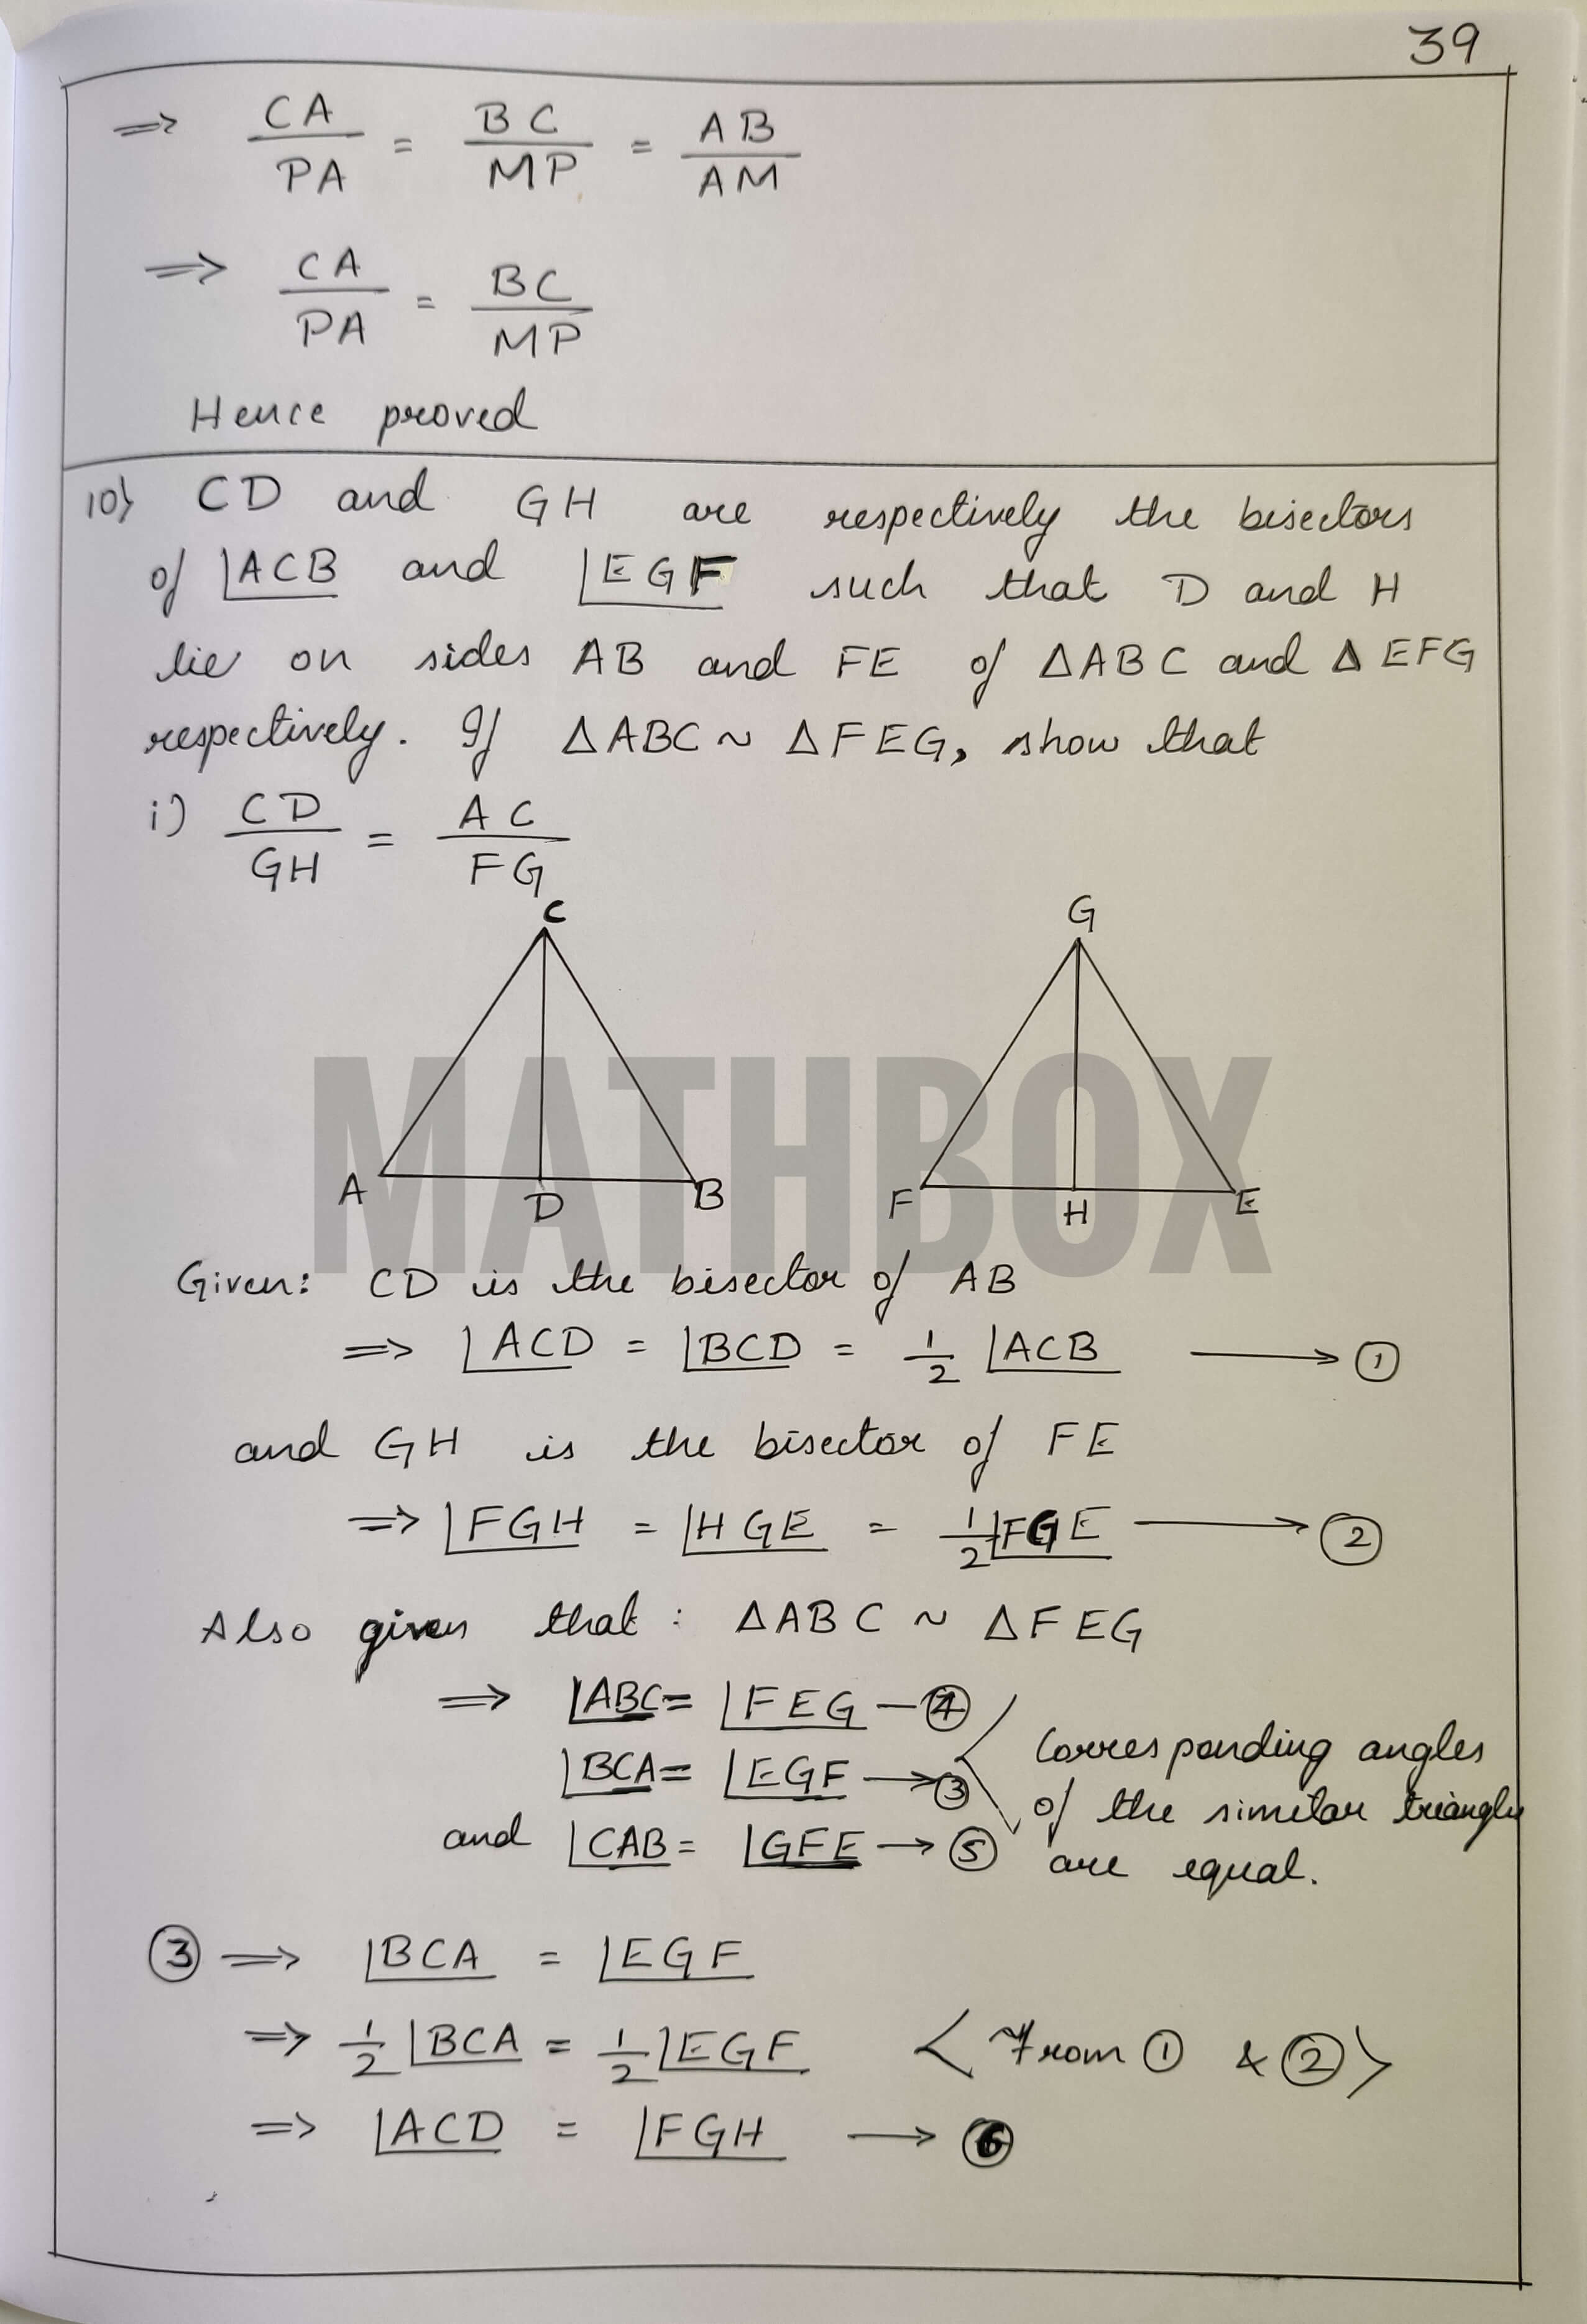 39
⇒ CA/PA = BC/MP = AB/AM
⇒ CA/PA = BC/MP
Hence proved
10) CD and GH are respectively the bisectors
of ∠ACB and ∠EGF such that D and H
lie on sides AB and FE of ΔABC and ΔEFG
respectively. If ΔABC ~ ΔFEG, show that
i) CD/GH = AC/FG
C
G
A
D
B
F
H
E
MATHBOX
Given: CD is the bisector of AB
⇒ ∠ACD = ∠BCD = 1/2 ∠ACB → ①
and GH is the bisector of FE
⇒ ∠FGH = ∠HGE = 1/2 ∠FGE → ②
Also given that : ΔABC ~ ΔFEG
⇒ ∠ABC = ∠FEG — ④
∠BCA = ∠EGF → ③
and ∠CAB = ∠GFE → ⑤
Corresponding angles
of the similar triangles
are equal.
③ ⇒ ∠BCA = ∠EGF
⇒ 1/2 ∠BCA = 1/2 ∠EGF < From ① & ② >
⇒ ∠ACD = ∠FGH → ⑥